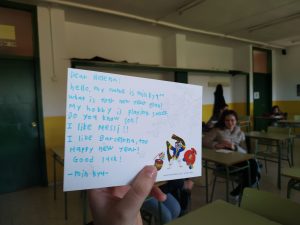 Dear Helena!
hello, my name is Minkyu~
what is your new year plan?
My hobby is playing soccer.
Do you know son?
I like Messi!!
I like Barcelona, too
Happy new year!
Good luck!
-Minkyu-